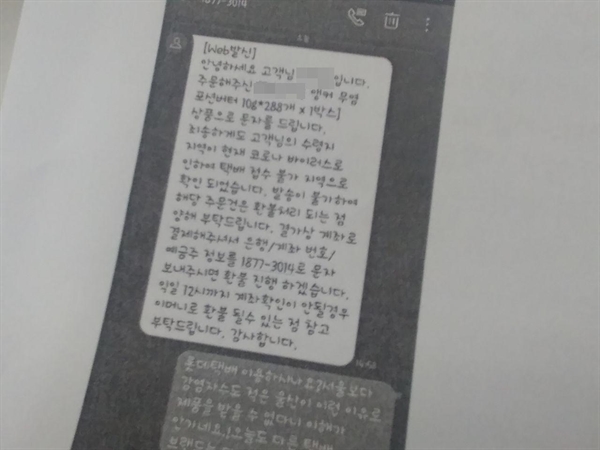 1877-3014
[Web발신]
안녕하세요 고객님 입니다.
주문해주신 앵커 무염
포션버터 10g*288개 x 1박스]
상품으로 문자를 드립니다.
죄송하게도 고객님의 수령지
지역이 현재 코로나 바이러스로
인하여 택배 접수 불가 지역으로
확인 되었습니다. 발송이 불가하여
해당 주문건은 환불처리 되는 점
양해 부탁드립니다. 결가상 계좌로
결제해주셔서 은행/계좌 번호/
예금주 정보를 1877-3014로 문자
보내주시면 환불 진행 하겠습니다.
익일 12시까지 계좌확인이 안될경우
이머니로 환불 될수 있는 점 참고
부탁드립니다. 감사합니다.
14:53
롯데택배 이용하시나요?서울보다
감염자수도 적은 울산이 이런 이유로
제품을 받을 수 없다니 이해가
안가네요.!오늘도 다른 택배